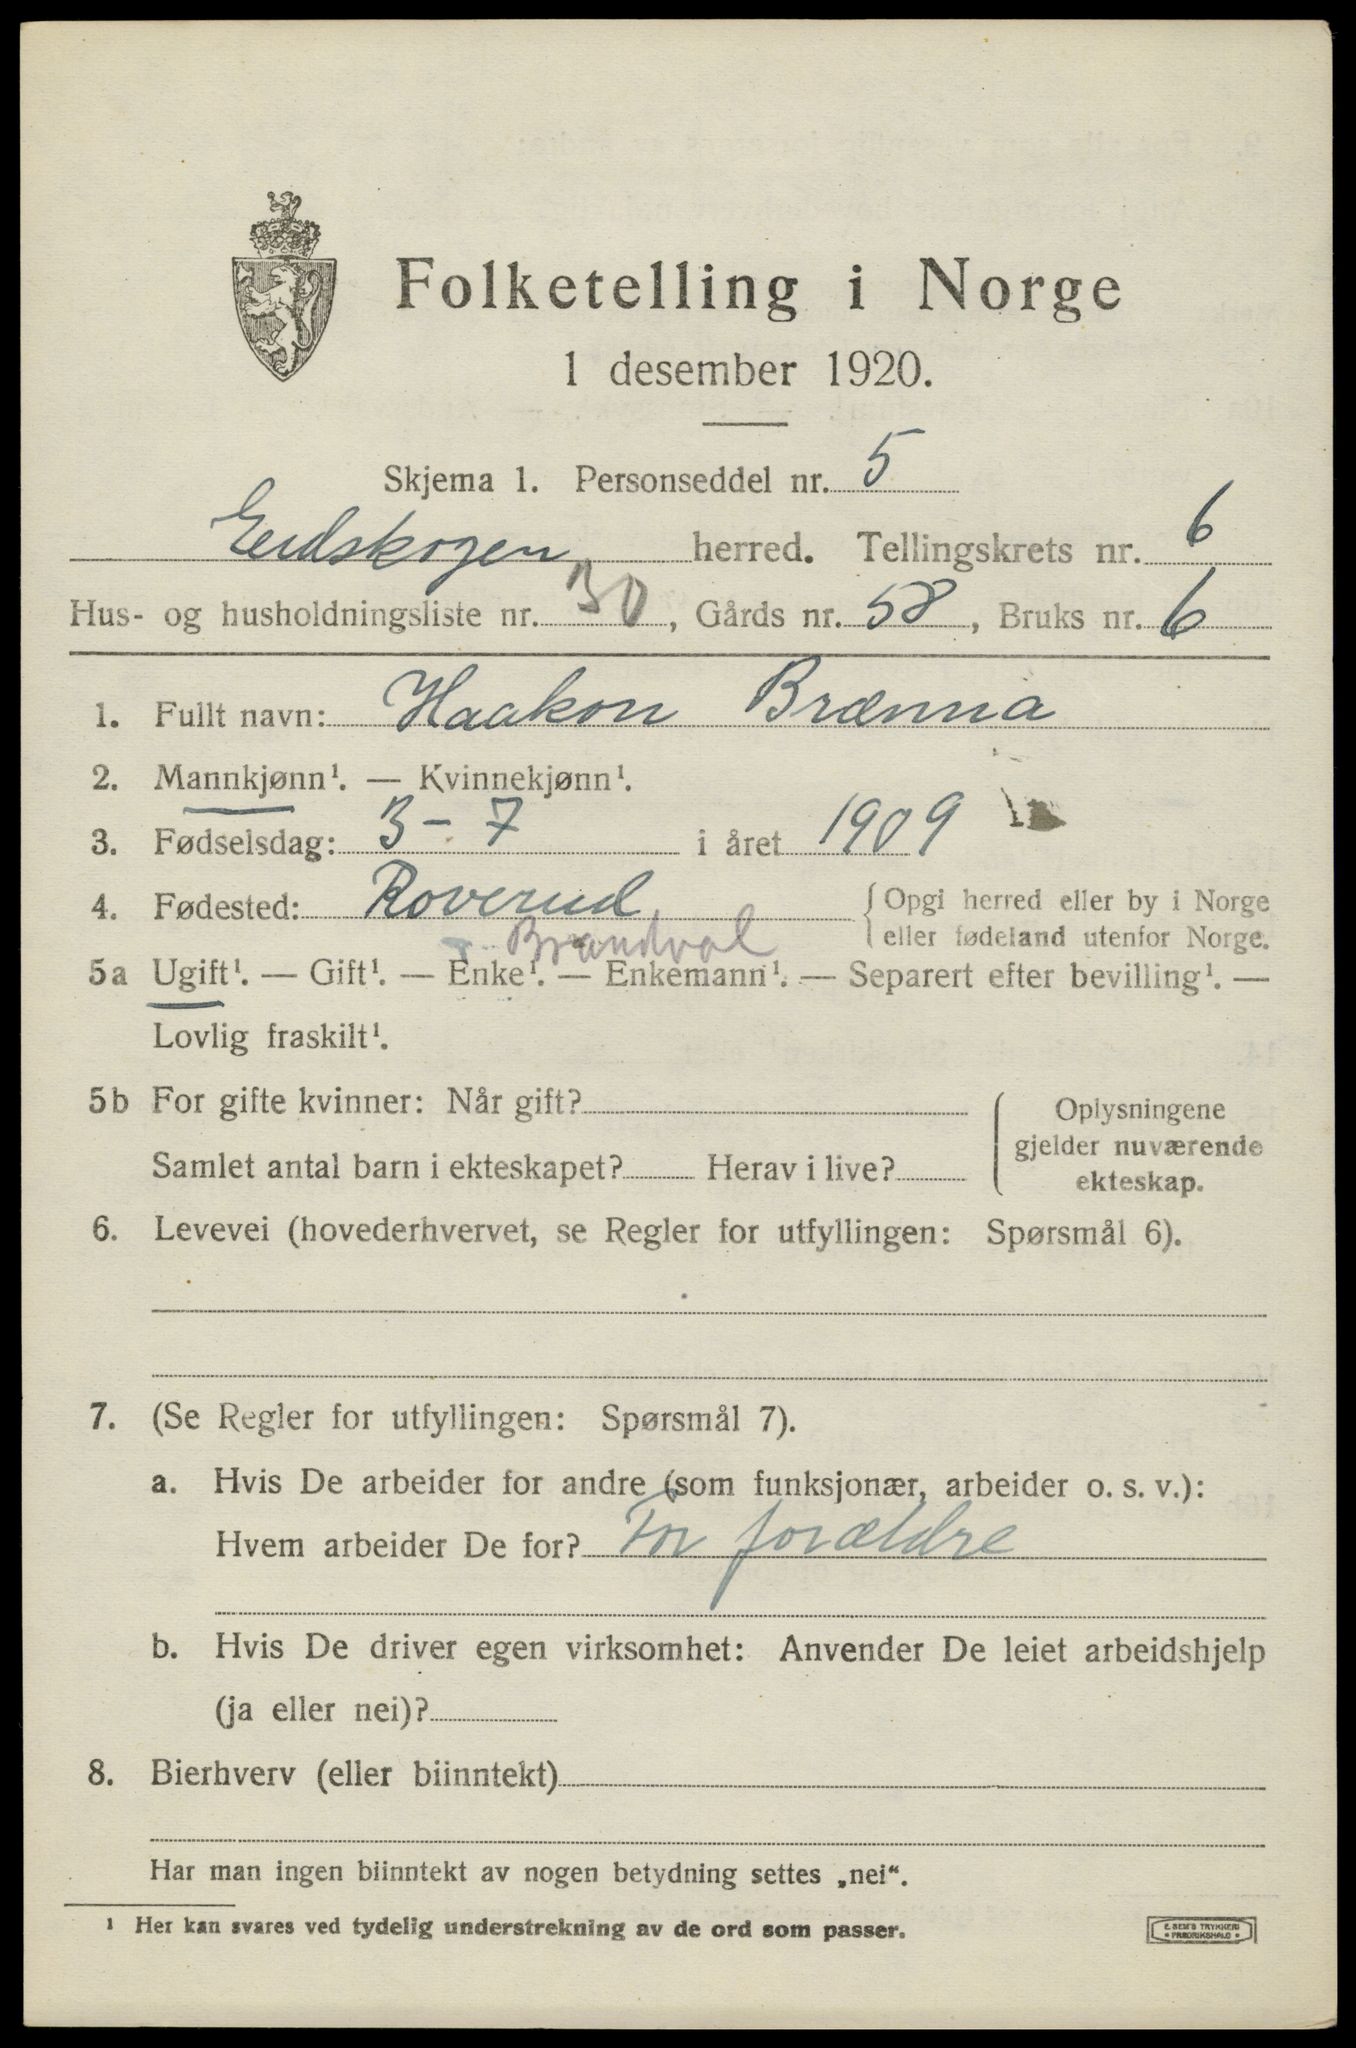 Folketelling i Norge
1 desember 1920.
Skjema 1. Personseddel nr. 5
Eidskogen herred. Tellingskrets nr. 6
Hus- og husholdningsliste nr. 30, Gårds nr. 58, Bruks nr. 6
1. Fullt navn: Haakon Brænna
2. Mannkjønn¹. — Kvinnekjønn¹.
3. Fødselsdag: 3-7 i året 1909
4. Fødested: Roverud { Opgi herred eller by i Norge
eller fødeland utenfor Norge.
Brandval
5a Ugift¹. — Gift¹. — Enke¹. — Enkemann¹. — Separert efter bevilling¹. —
Lovlig fraskilt¹.
5b For gifte kvinner: Når gift?
Samlet antal barn i ekteskapet? Herav i live?
Oplysningene
gjelder nuværende
ekteskap.
6. Levevei (hovederhvervet, se Regler for utfyllingen: Spørsmål 6).
7. (Se Regler for utfyllingen: Spørsmål 7).
a. Hvis De arbeider for andre (som funksjonær, arbeider o. s. v.):
Hvem arbeider De for? For forældre
b. Hvis De driver egen virksomhet: Anvender De leiet arbeidshjelp
(ja eller nei)?
8. Bierhverv (eller biinntekt)
Har man ingen biinntekt av nogen betydning settes „nei“.
¹ Her kan svares ved tydelig understrekning av de ord som passer.
E. SEM'S TRYKKERI
• FREDRIKSHALD •